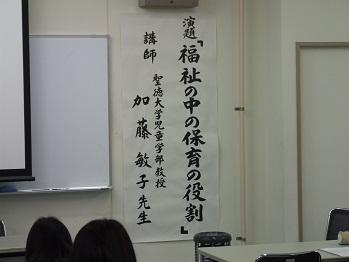 演題「福祉の中の保育の役割」
講師 聖徳大学児童学部教授
加藤敏子先生